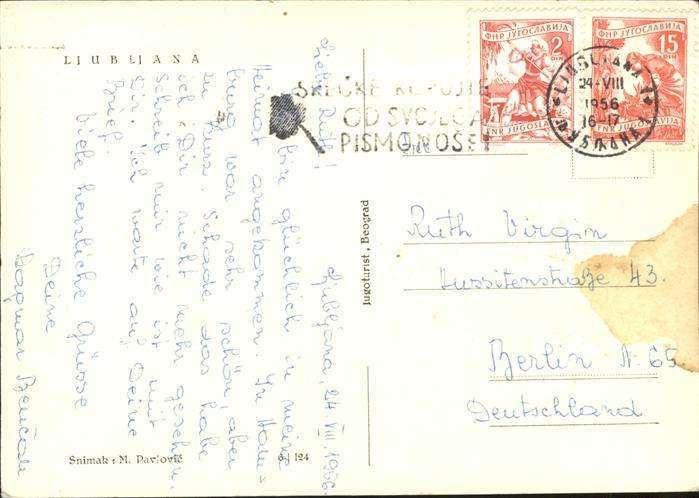 LJUBLJANA
Ljubljana, 24. VIII. 1956.
Liebe Ruth!
bin glücklich in meine
Heimat angekommen. In Ham=
burg war sehr schön, aber
zu kurz. Schade das habe
ich Dir nicht mehr gesehen.
Schreib mir wie ist mit
Dir. Ich warte auf Deine
Brief.
Viele herzliche Grüsse
Deine
Dagmar
Snimak: M. Pavlović
6 / 124
Jugoturist, Beograd
OD SVOJEGA
PISMONOŠE!
ФНР ЈУГОСЛАВИЈА
2
DIN
FNR JUGOSLAVIJA
ФНР ЈУГОСЛАВИЈА
15
DIN
FNR JUGOSLAVIJA
LJUBLJANA 1
24-VIII
1956
16-17
Ruth Virgin
Hussitenstraße 43.
Berlin N. 65
Deutschland